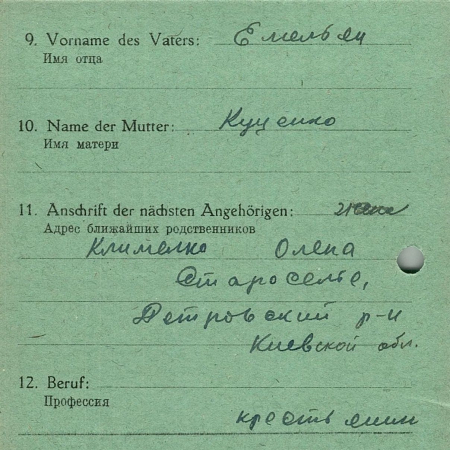 9. Vorname des Vaters: Емельян
Имя отца
10. Name der Mutter: Куценко
Имя матери
11. Anschrift der nächsten Angehörigen:
Адрес ближайших родственников
Клименко Олена
Староселье,
Петровский р-н
Киевской обл.
12. Beruf:
Профессия
крестьянин